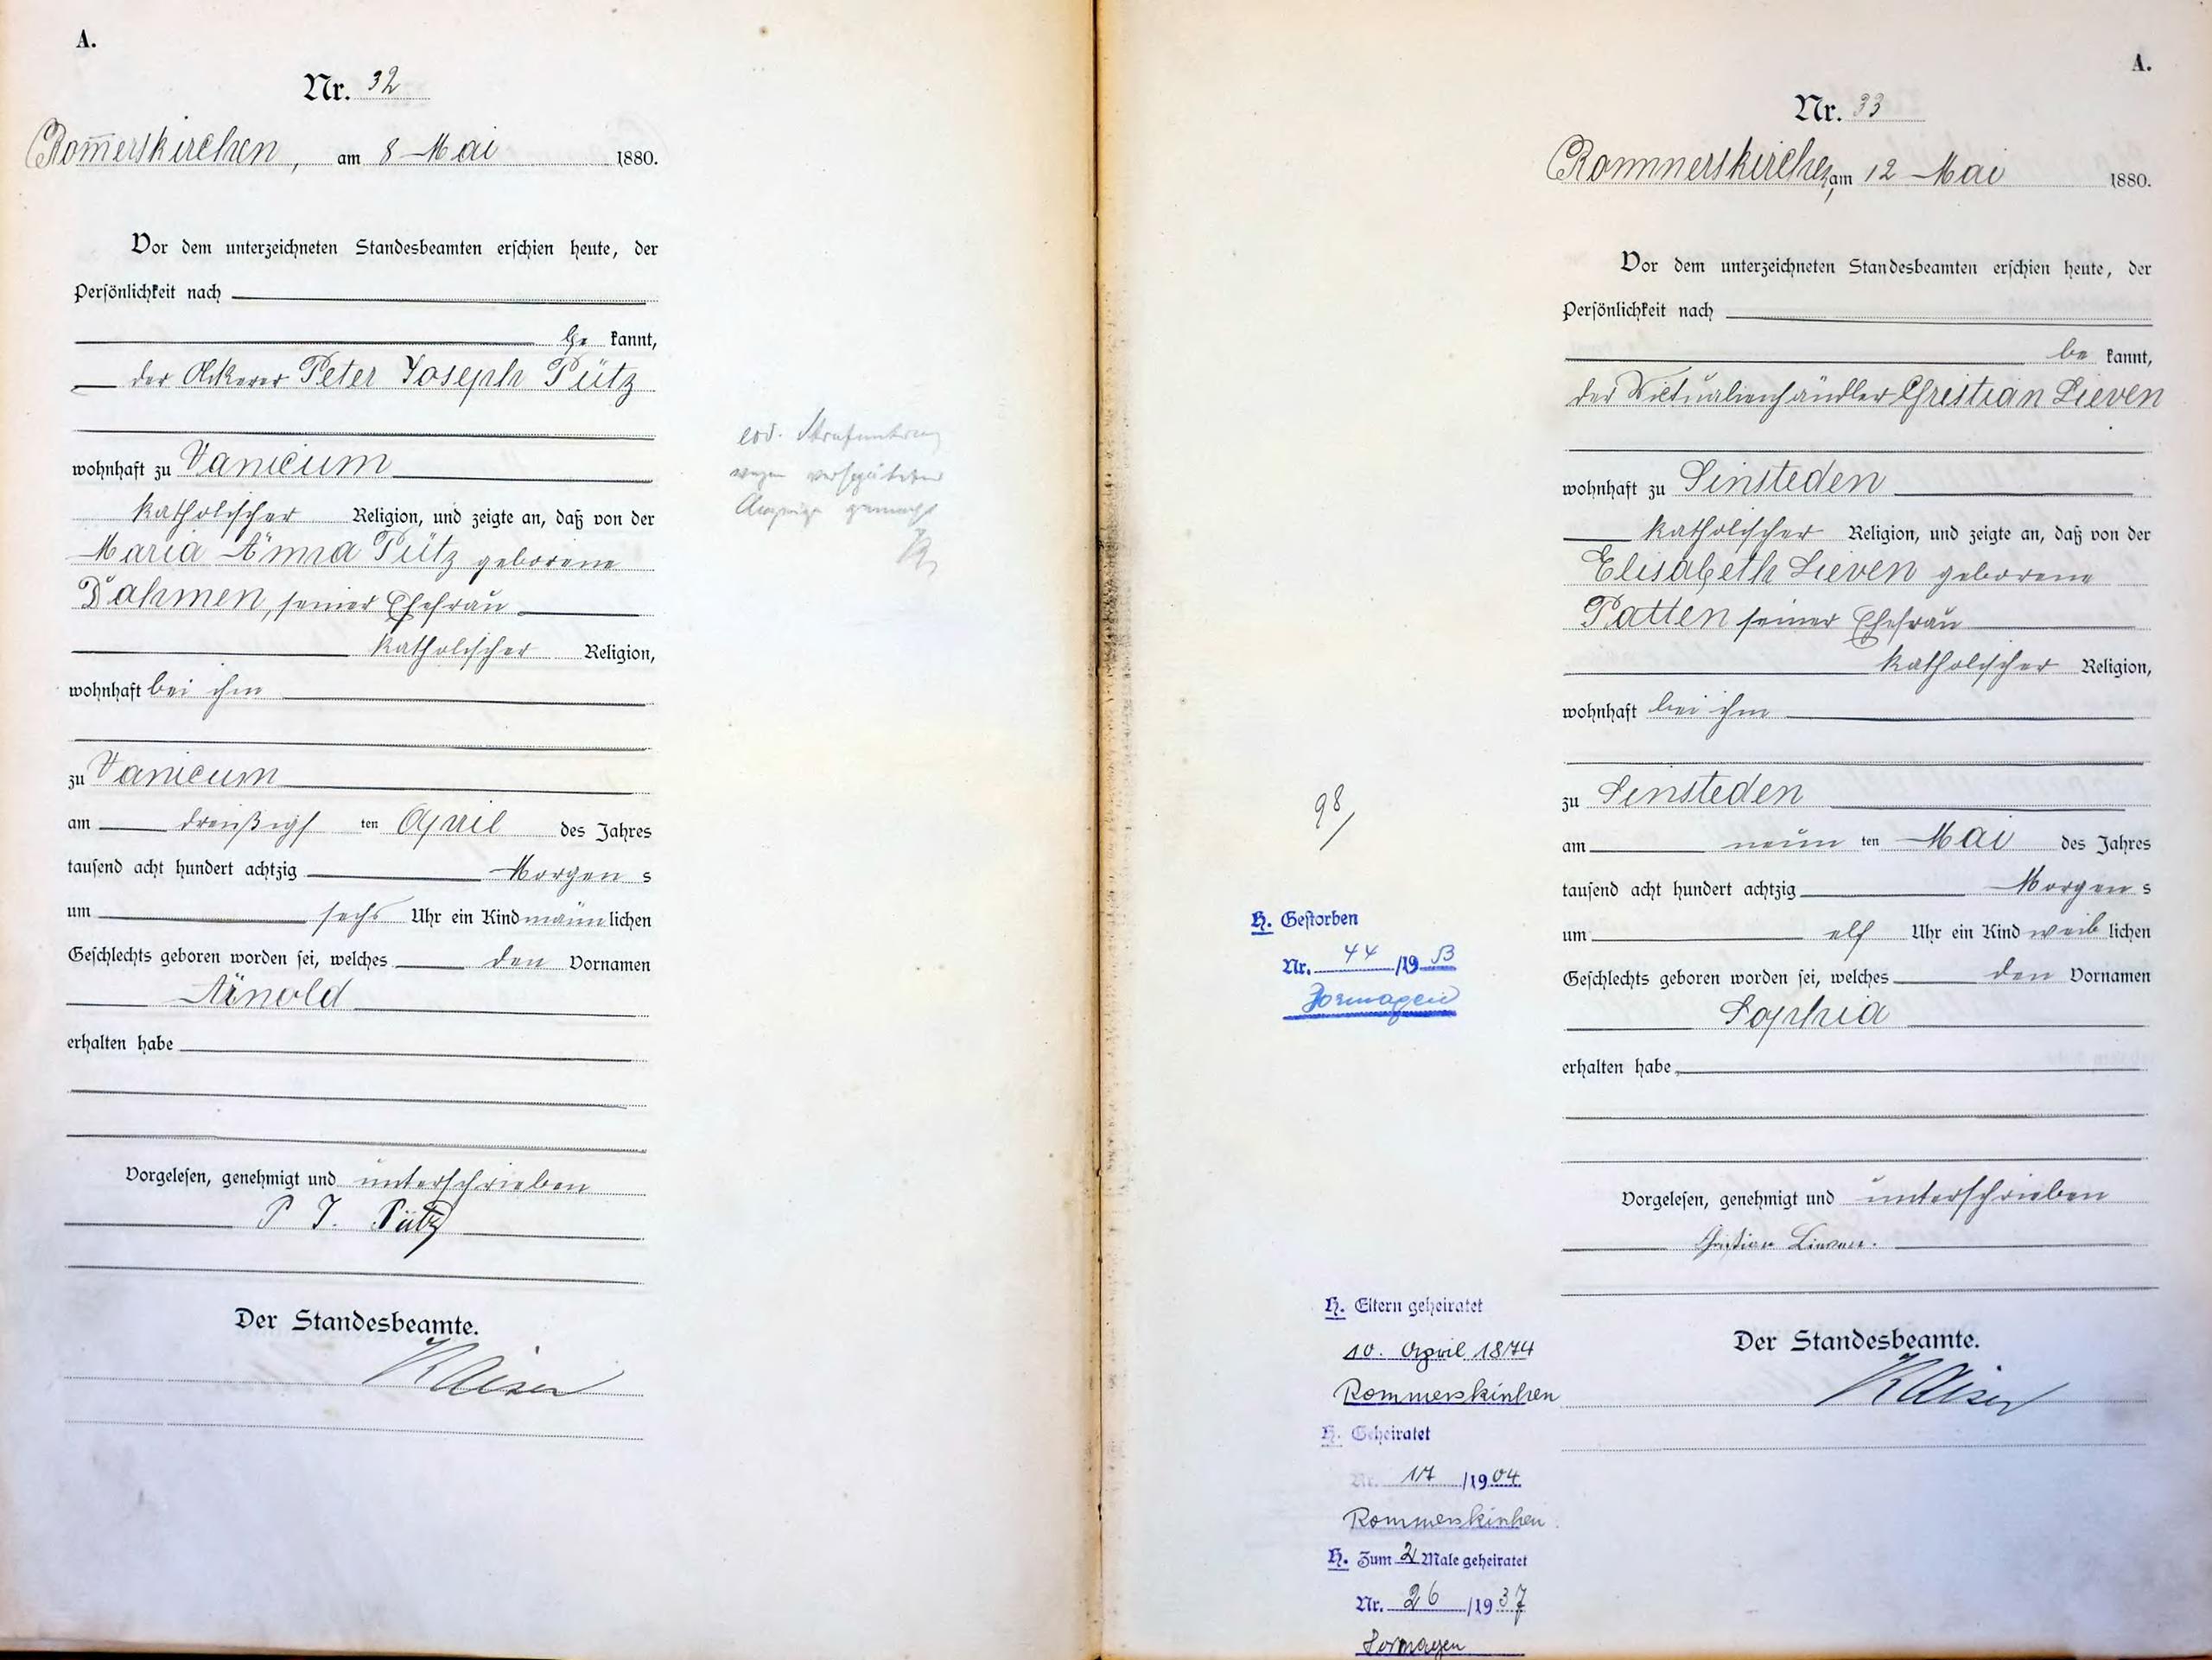 A.
Nr. 32
Rom̅erskirchen, am 8 Mai 1880.
Vor dem unterzeichneten Standesbeamten erschien heute, der
Persönlichkeit nach
be kannt,
der Ackerer Peter Joseph Pütz
wohnhaft zu Vanicum
katholischer Religion, und zeigte an, daß von der
Maria Anna Pütz geborene
Dahmen, seiner Ehefrau
katholischer Religion,
wohnhaft bei ihm
zu Vanicum
am dreißigs ten April des Jahres
tausend acht hundert achtzig Morgen s
um sechs Uhr ein Kind männ lichen
Geschlechts geboren worden sei, welches den Vornamen
Arnold
erhalten habe
Vorgelesen, genehmigt und unterschrieben
P J. Pütz
Der Standesbeamte.
Kaiser
eod. Strafantrag
wegen verspäteter
Anzeige gemacht
A.
Nr. 33
Rommerskirchen, am 12 Mai 1880.
Vor dem unterzeichneten Standesbeamten erschien heute, der
Persönlichkeit nach
be kannt,
der Victualienhändler Christian Lieven
wohnhaft zu Sinsteden
katholischer Religion, und zeigte an, daß von der
Elisabeth Lieven geborene
Patten seiner Ehefrau
katholischer Religion,
wohnhaft bei ihm
zu Sinsteden
am neun ten Mai des Jahres
tausend acht hundert achtzig Morgen s
um elf Uhr ein Kind weib lichen
Geschlechts geboren worden sei, welches den Vornamen
Sophia
erhalten habe
Vorgelesen, genehmigt und unterschrieben
Christian Lieven.
Der Standesbeamte.
Kaiser
98/
H. Gestorben
Nr. 44 /19 53
Dormagen
H. Eltern geheiratet
10. April 1874
Rommerskirchen
H. Geheiratet
Nr. 17 /19 04
Rommerskirchen
H. Zum 2 Male geheiratet
Nr. 26 /19 37
Dormagen